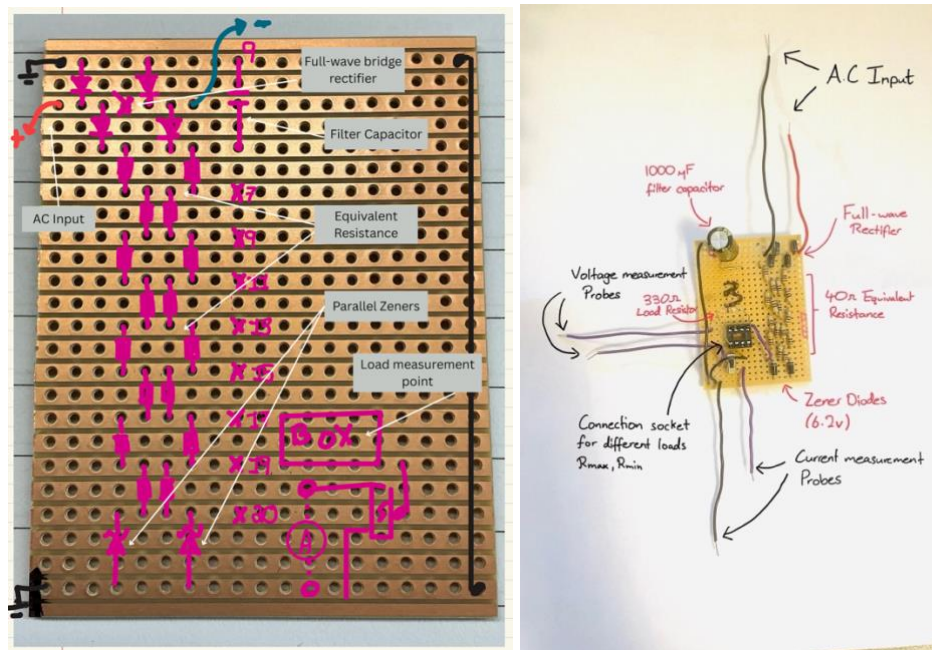 +
-
9
Full-wave bridge
rectifier
Filter Capacitor
AC Input
x7
Equivalent
Resistance
x9
x11
Parallel Zeners
x13
x15
Load measurement
point
x17
BOX
x19
x20
A
A.C Input
1000μF
filter capacitor
Full-wave
Rectifier
Voltage measurement
Probes
330Ω
Load Resistor
3
40Ω Equivalent
Resistance
Zener Diodes
(6.2v)
Connection socket
for different loads
Rmax, Rmin
Current measurement
Probes